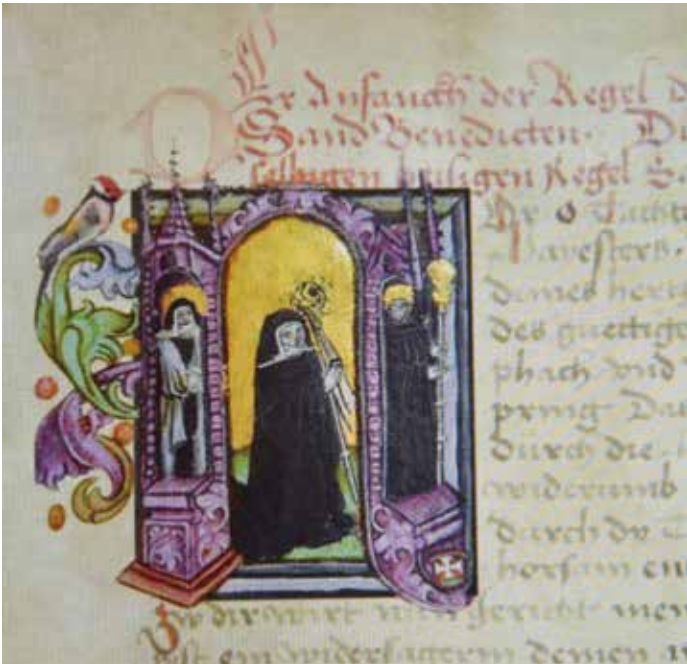 Er Anfanckh der Regel d
Sand Benedicten. Di
selbigen heiligen Regel Sa
o Tacht
Maysters.
deines hertz
des guettige
phach vnd
pring Da
durch die
widerumb
durch dy
horsam en
Zw dir wirt nun gericht mein
ist ein widersagerin deinen a